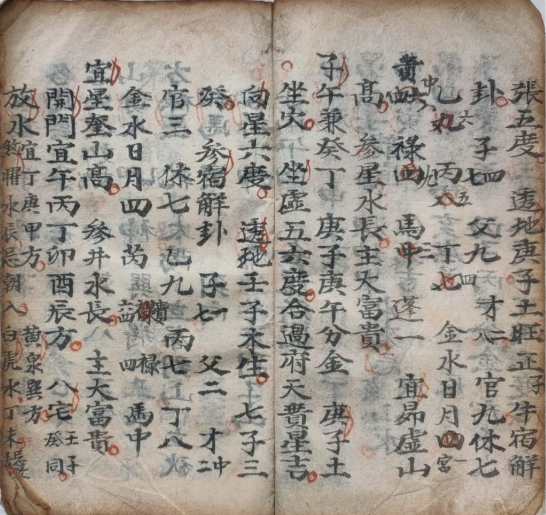 張五度 透地庚子土旺正 牛宿解
卦 子七 父九 才八 官九 休七
乙九 丙 丁七 金水日月四
貴 祿四 馬中 蓬一 宜昴虛山
高 參星水長主大富貴
子午兼癸丁 庚子庚午分金 庚子土
坐火 坐虛五六度合過府天貴星吉
向星六度 透地壬子木生 七子三
癸 參宿解卦 子七 父二 才二
官三 休七 乙九 丙七 丁八
金水日月四 芮 貴 祿四 馬中
宜星奎山高 參井水長 主大富貴
開門宜午丙丁卯酉辰方 八宅 壬子癸同
放水宜丁庚甲方 黃泉巽方 水長忌朝入白虎水丁未